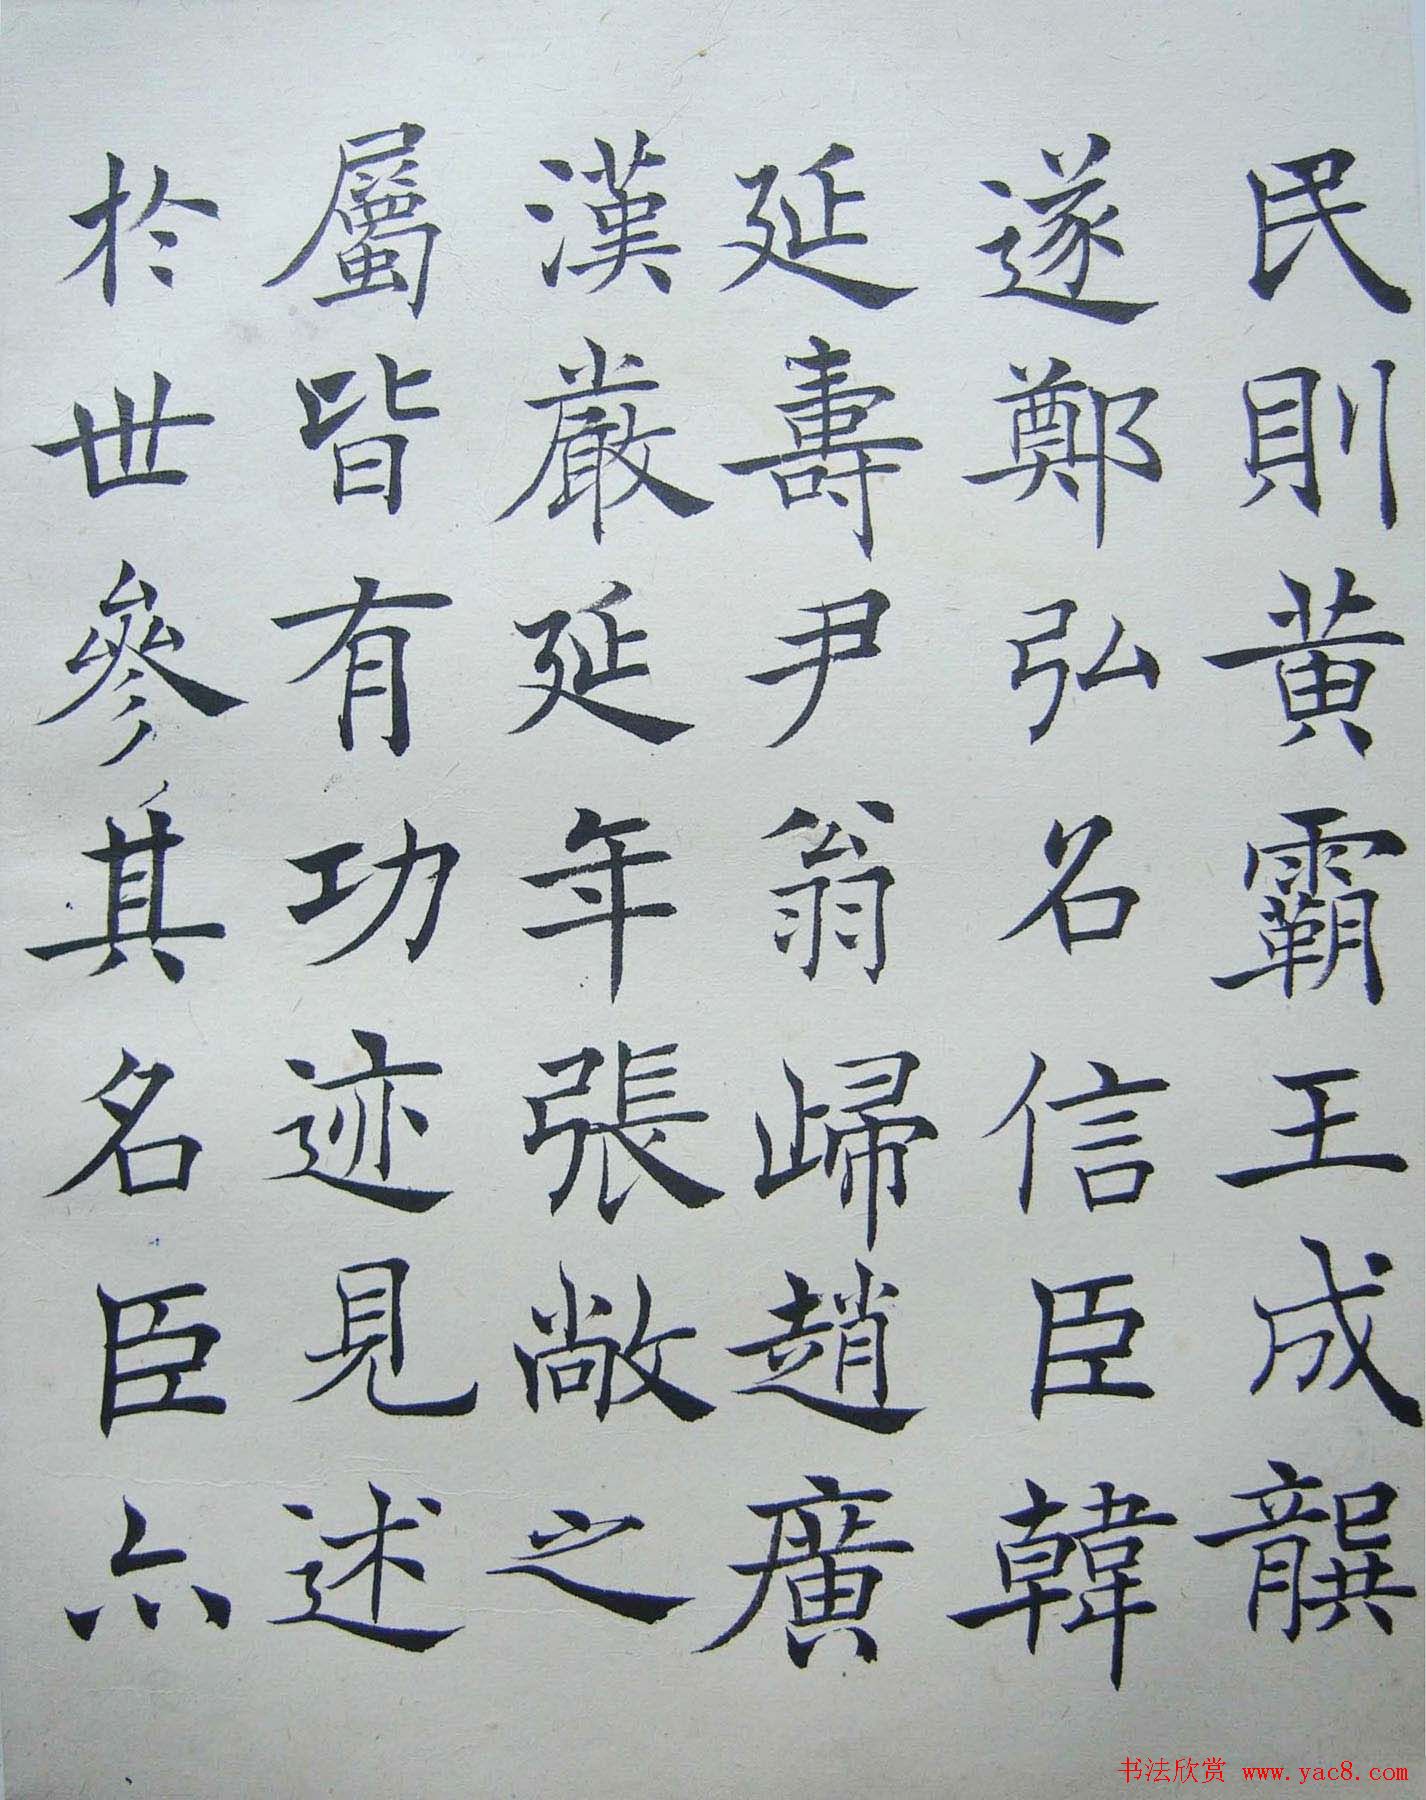 民則黄霸王成龔
遂鄭弘名信臣韓
延壽尹翁歸趙廣
漢嚴延年張敞之
屬皆有功迹見述
於世參其名臣亦
书法欣赏 www.yac8.com